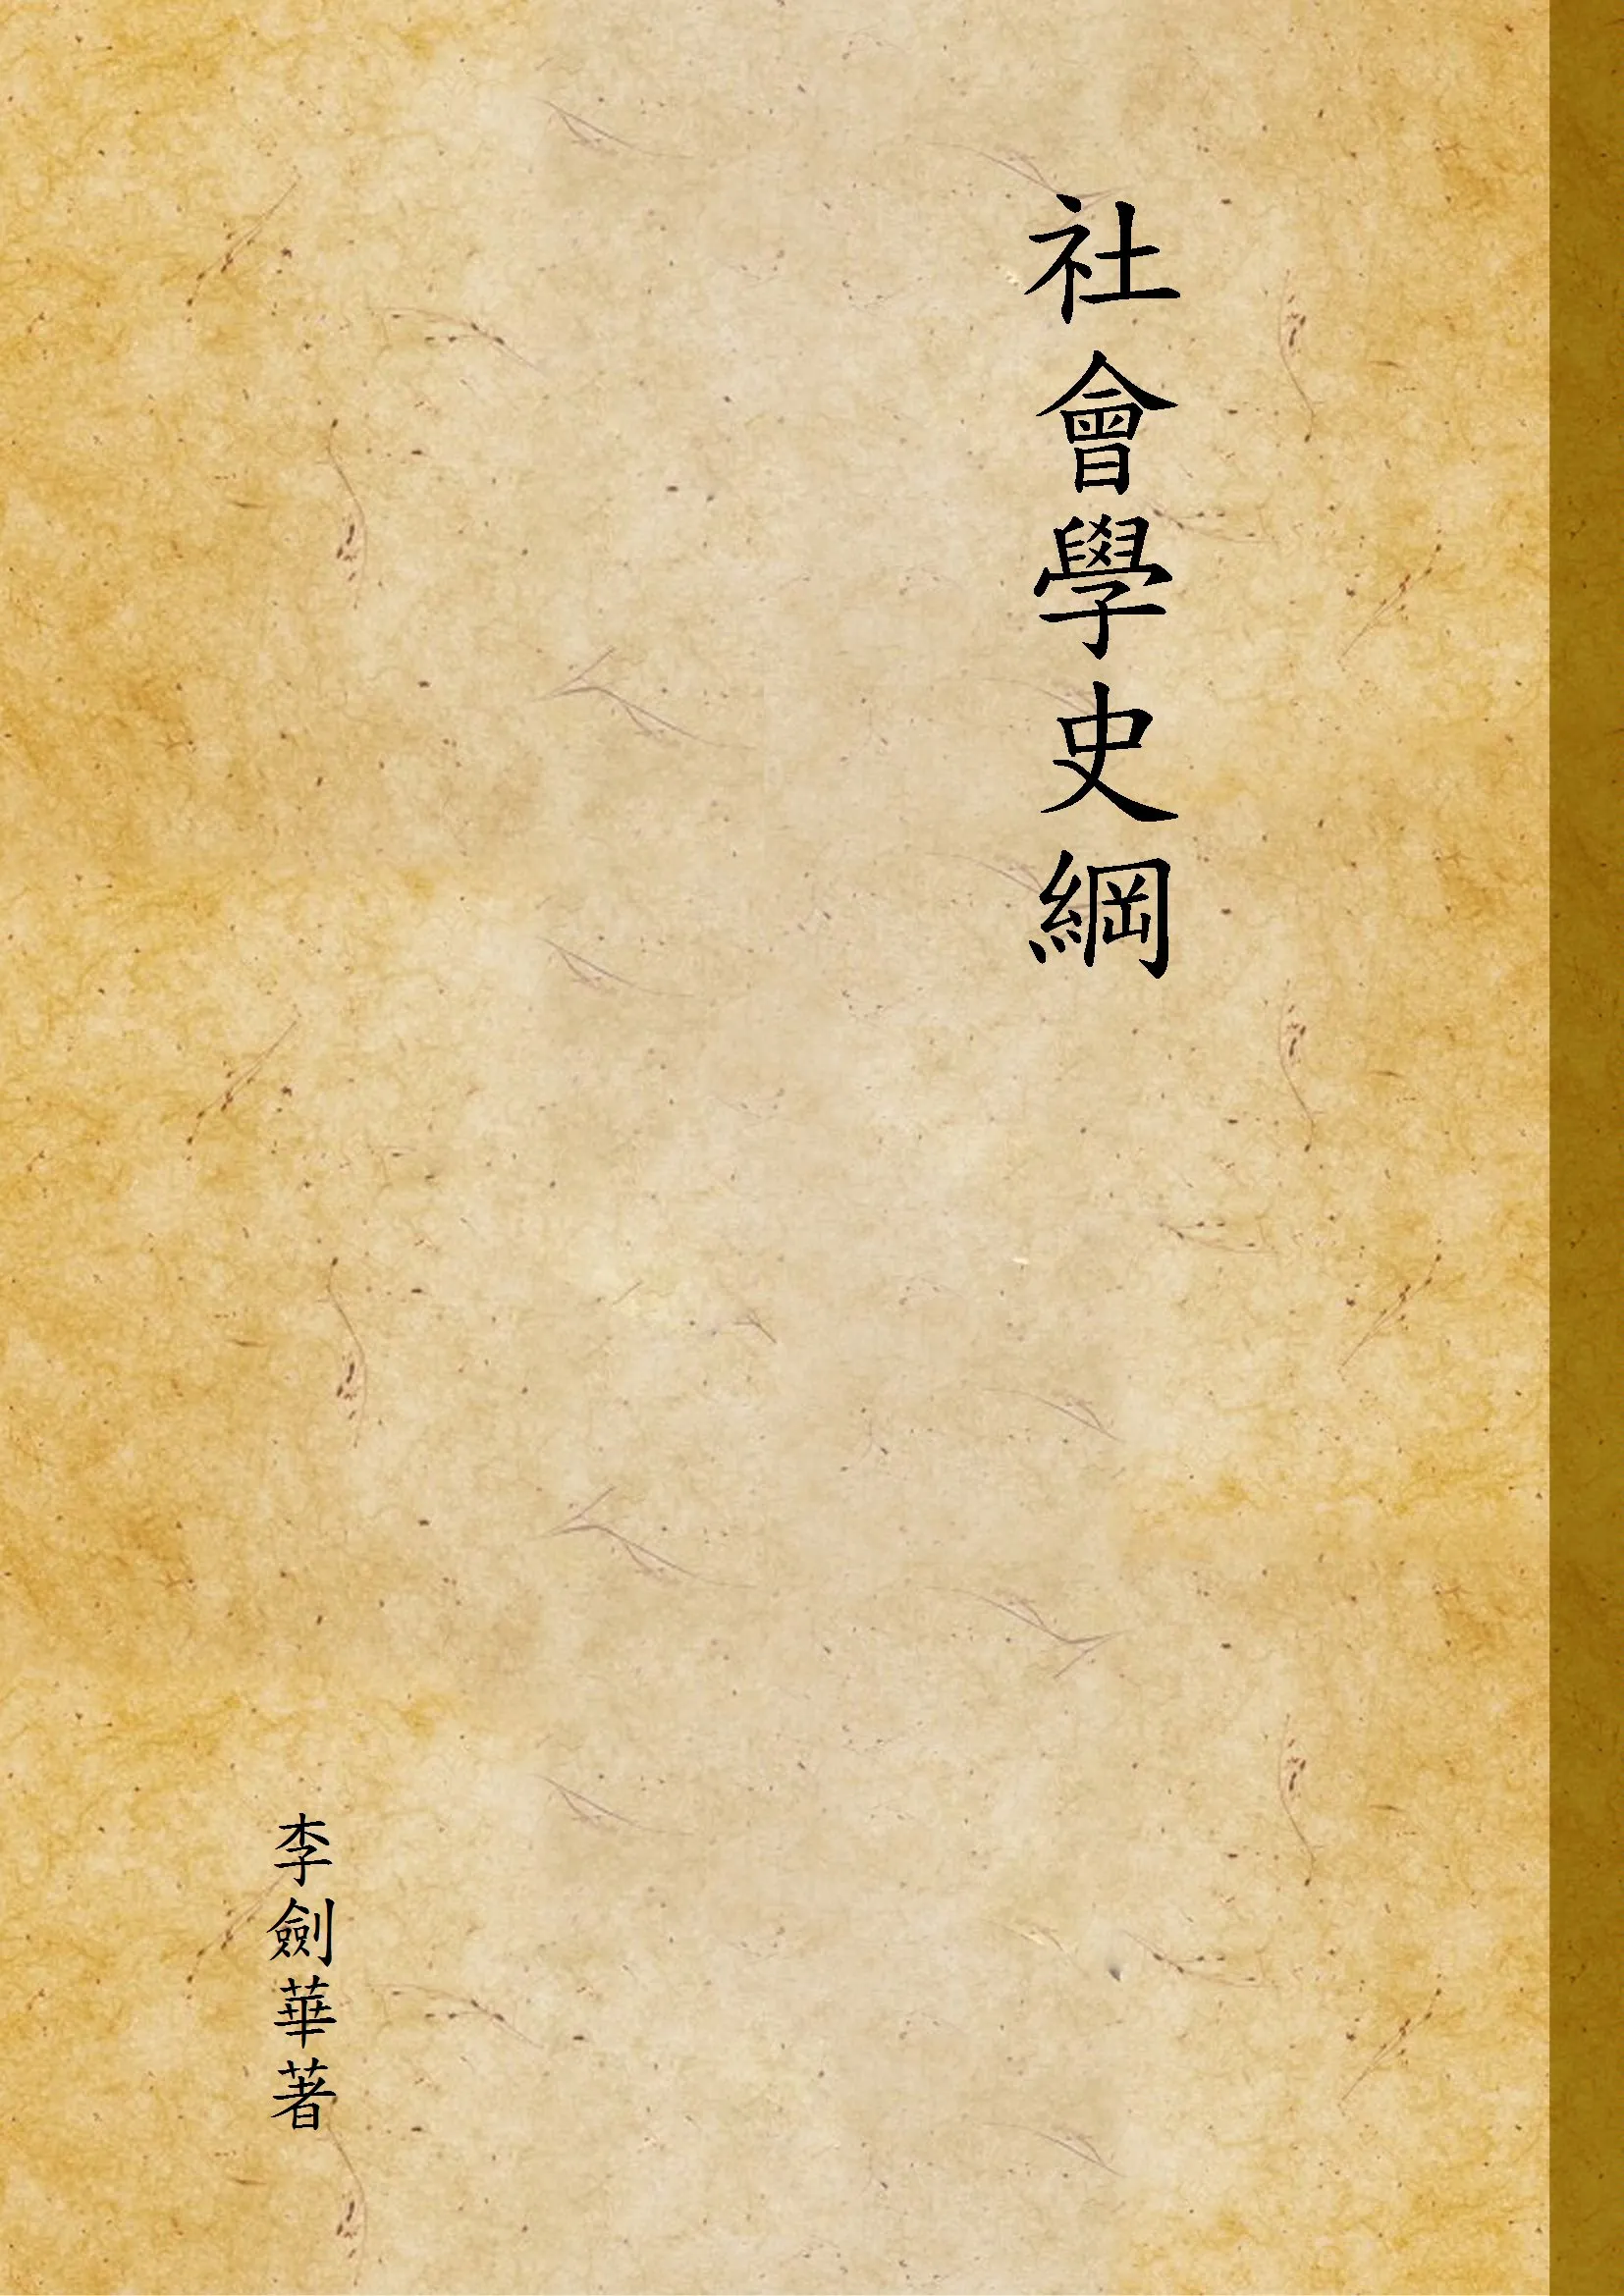 社會學史綱
李劍華著